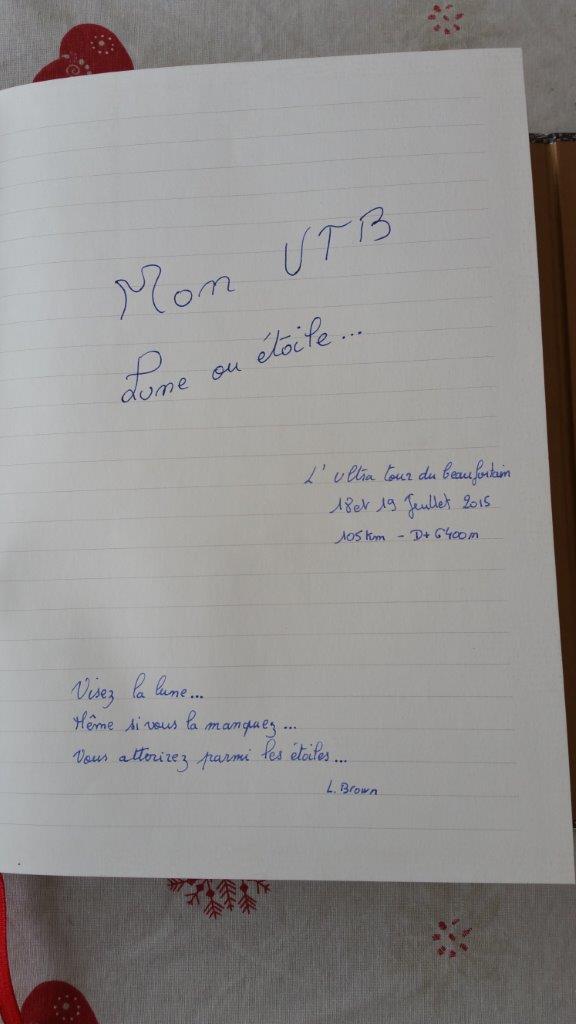 Mon UTB
Lune ou étoile...
L'Ultra tour du beaufortain
18 et 19 Juillet 2015
105km - D+ 6400m
Visez la lune...
Même si vous la manquez...
Vous attérirez parmi les étoiles...
L. Brown